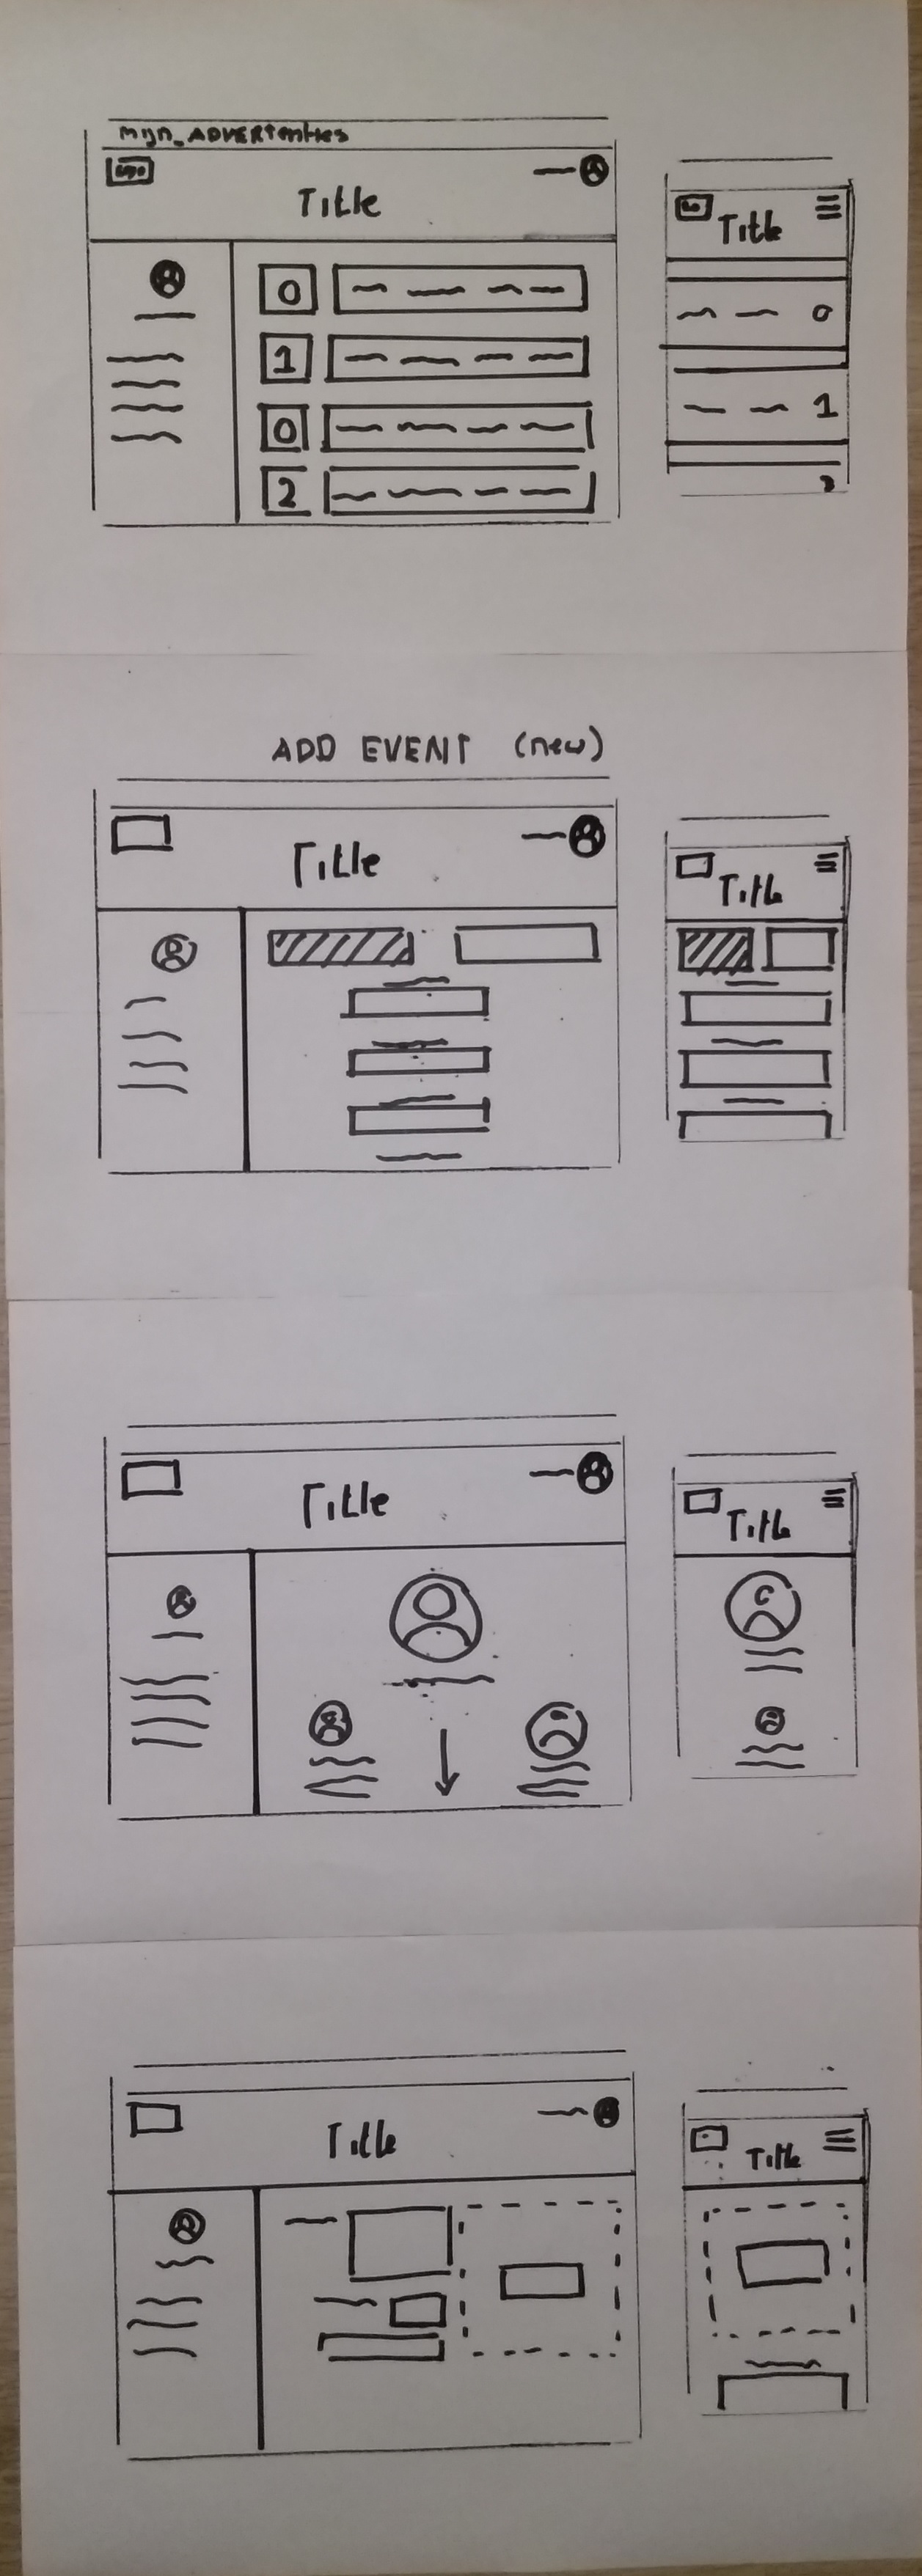 mijn_ADVERtenties
Title
Title
0
0
1
1
0
2
ADD EVENT (new)
Title
Title
Title
Title
Title
Title